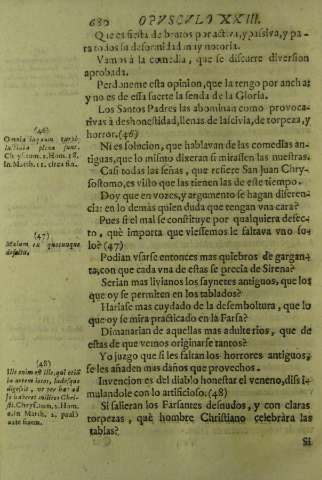 630 OPVSCVLO XXIII.
Que es fiesta de brutos por activa, y passiva, y pa-
ra todos su deformidad muy notoria.
Vamos à la comedia, que se discurre diversion
aprobada.
Perdoneme esta opinion, que la tengo por ancha;
y no es de essa suerte la senda de la Gloria.
Los Santos Padres las abominan como provoca-
tivas à deshonestidad, llenas de lascivia, de torpeza, y
horror. (46)
Ni es solucion, que hablavan de las comedias an-
tiguas, que lo mismo dixeran si mirassen las nuestras.
Casi todas las señas, que refiere San Juan Chry-
sostomo, es visto que las tienen las de este tiempo.
Doy que en vozes, y argumento se hagan diferen-
cia: en lo demàs quien duda que tengan vna cara?
Pues si el mal se constituye por qualquiera defec-
to, què importa que viessemos le faltava vno so-
lo? (47)
Podian vsarse entonces mas quiebros de gargan-
ta, con que cada vna de estas se precia de Sirena?
Serian mas livianos los saynetes antiguos, que los
que oy se permiten en los tablados?
Harìase mas cuydado de la desemboltura, que lo
que oy se mira practicado en la Farsa?
Dimanarian de aquellas mas adulterios, que de
estas de que vemos originarse tantos?
Yo juzgo que si les faltan los horrores antiguos,
se les añaden mas daños que provechos.
Invencion es del diablo honestar el veneno, dissi-
mulandole con lo artificioso. (48)
Si salieran los Farsantes desnudos, y con claras
torpezas, què hombre Christiano celebràra las
tablas?
Si
(46)
Omnia
plena sunt.
Chrys. tom. 2. Hom. 38.
in Matth. 11. circa fin.
(47)
Malum ex quocunque
defectu.
(48)
Ille enim est ille, qui
artem iocos, ludosque
digessit, ut per hæc ad
se traheret milites Chris-
ti. Chrys. tom. 2. Hom.
6. in Matth. 2. paulò
ante finem.